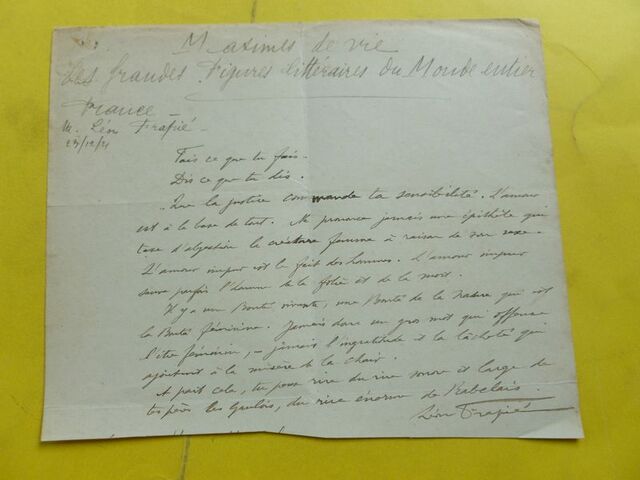 Maximes de vie
Les Grandes Figures littéraires du Monde entier
France
M. Léon Frapié
23/12/21
Fais ce que tu fais.
Dis ce que tu dis.
Que la justice commande ta sensibilité. L'amour
est à la base de tout. Ne prononce jamais une épithète qui
taxe d'abjection la créature femme à raison de son sexe.
L'amour impur est le fait des hommes. L'amour impur
sauve parfois l'homme de la folie et de la mort.
Il y a une Bonté vivante, une Bonté de la nature qui est
la Bonté féminine. Jamais donc un gros mot qui offense
l'être féminin, – jamais l'ingratitude et la lâcheté qui
ajoutent à la misère de la chair.
A part cela, tu peux rire du rire sonore et large de
tes pères les Gaulois, du rire énorme de Rabelais.
Léon Frapié